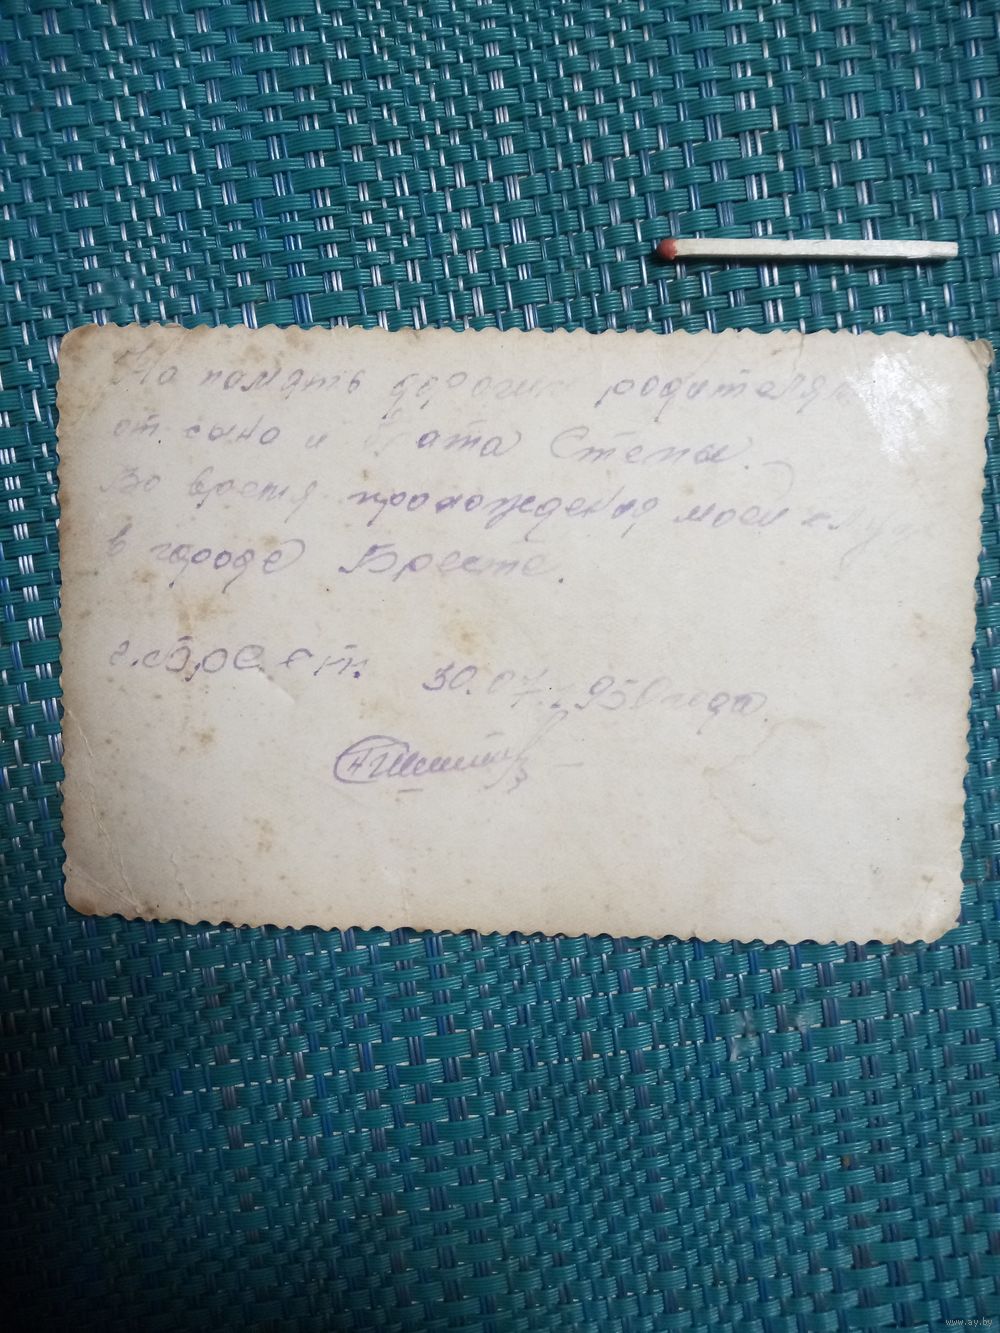 На память дорогим родителям
от сына и брата Степы.
Во время прохождения моей
в городе Бресте.
г. Брест. 30.07.1950 года
www.ay.by